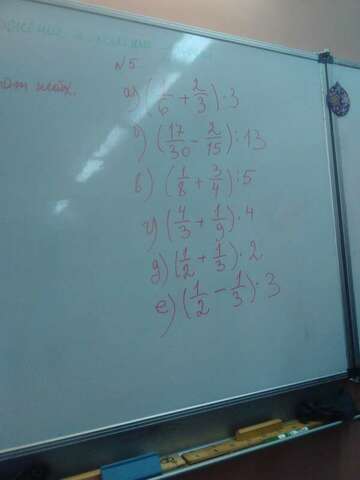 N5
а) (1/6 + 2/3) : 3
б) (17/30 - 2/15) : 13
в) (1/8 + 3/4) : 5
г) (4/3 + 1/9) · 4
д) (1/2 + 1/3) · 2
е) (1/2 - 1/3) · 3